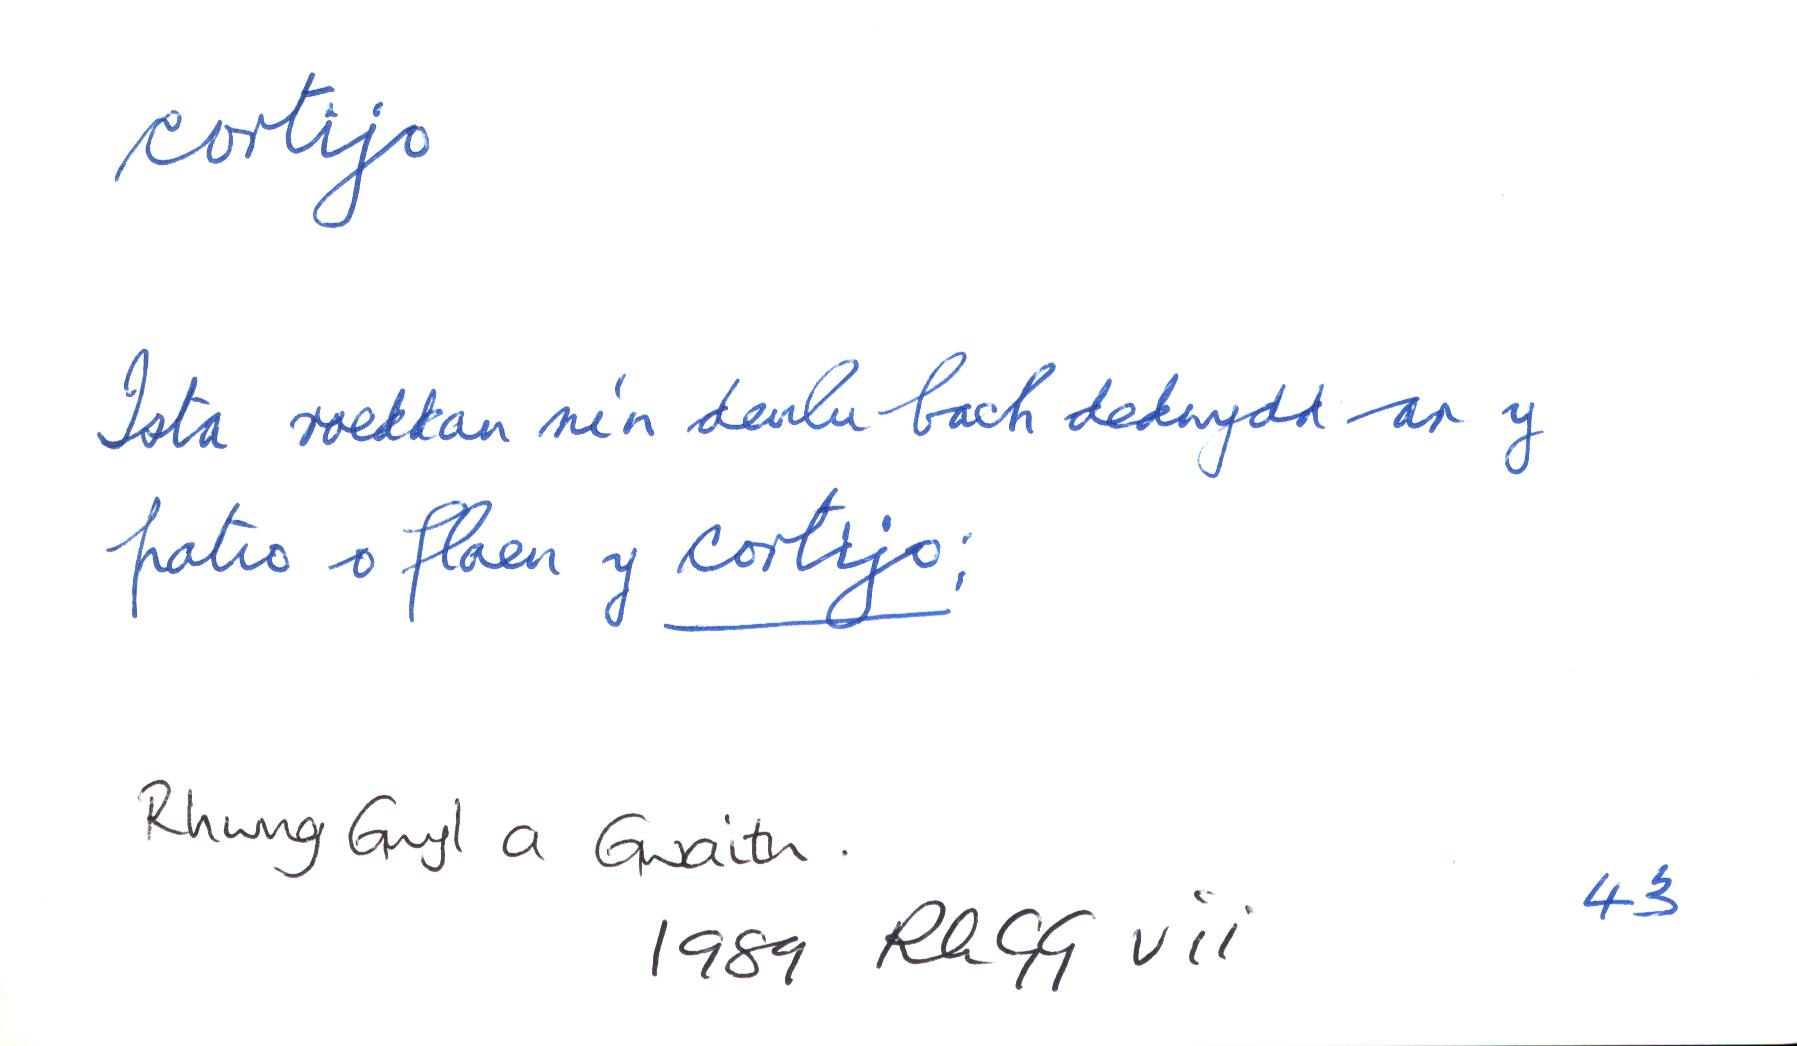 cortijo
Ista roeddan ni'n deulu bach dedwydd ar y
patio o flaen y cortijo;
Rhwng Gwyl a Gwaith.
1989 RhGG vii
43